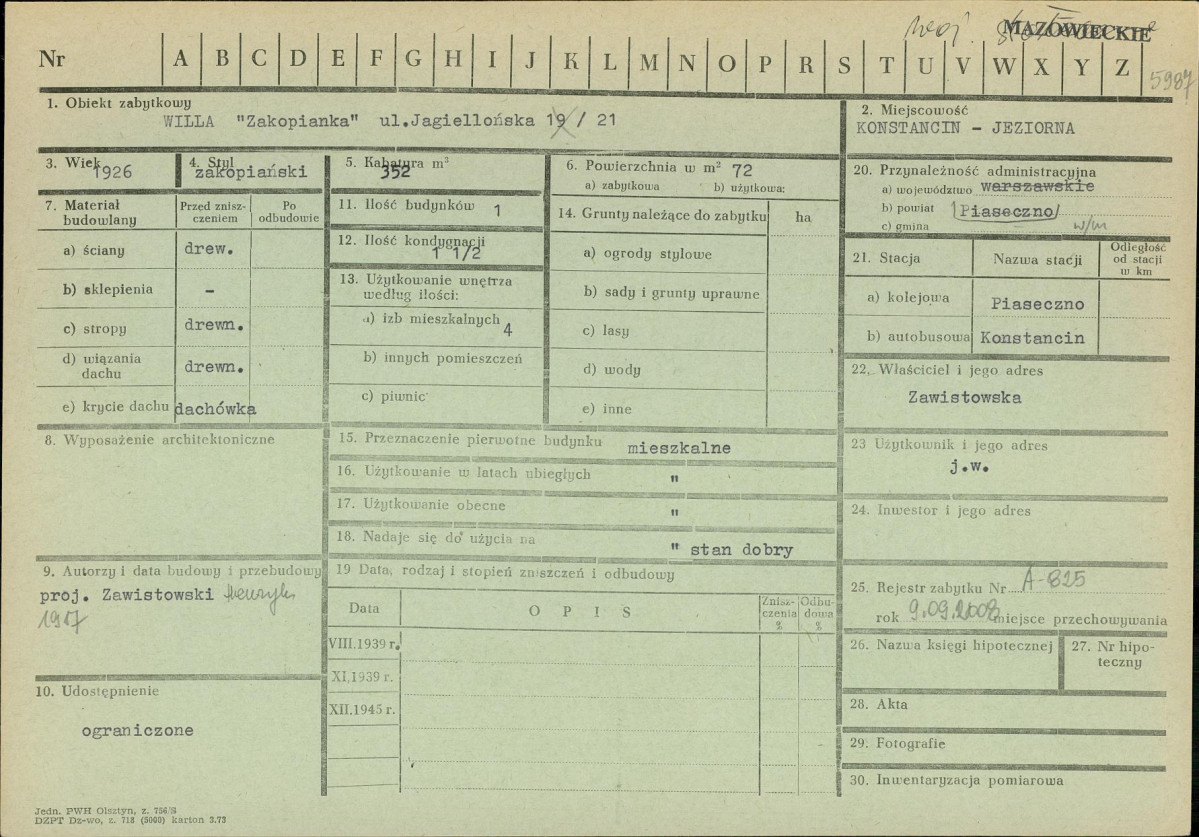 woj. MAZOWIECKIE
Nr A B C D E F G H I J K L M N O P R S T U V W X Y Z
5987
1. Obiekt zabytkowy
WILLA "Zakopianka" ul.Jagiellońska 19 / 21
2. Miejscowość
KONSTANCIN - JEZIORNA
3. Wiek
1926
4. Styl
zakopiański
5. Kubatura m³
352
6. Powierzchnia w m² 72
a) zabytkowa b) użytkowa:
7. Materiał budowlany
Przed znisz-
czeniem
Po
odbudowie
a) ściany drew.
b) sklepienia -
c) stropy drewn.
d) wiązania
dachu drewn.
e) krycie dachu dachówka
8. Wyposażenie architektoniczne
9. Autorzy i data budowy i przebudowy
proj. Zawistowski Henryk
1917
10. Udostępnienie
ograniczone
11. Ilość budynków 1
12. Ilość kondygnacji
1 1/2
13. Użytkowanie wnętrza
według ilości:
a) izb mieszkalnych 4
b) innych pomieszczeń
c) piwnic
14. Grunty należące do zabytku ha
a) ogrody stylowe
b) sady i grunty uprawne
c) lasy
d) wody
e) inne
15. Przeznaczenie pierwotne budynku mieszkalne
16. Użytkowanie w latach ubiegłych "
17. Użytkowanie obecne "
18. Nadaje się do użycia na " stan dobry
19 Data, rodzaj i stopień zniszczeń i odbudowy
Data
O P I S
Znisz-
czenia
%
Odbu-
dowa
%
VIII.1939 r.
XI.1939 r.
XII.1945 r.
20. Przynależność administracyjna
a) województwo warszawskie
b) powiat Piaseczno
c) gmina w/m
21. Stacja
Nazwa stacji
Odległość
od stacji
w km
a) kolejowa Piaseczno
b) autobusowa Konstancin
22. Właściciel i jego adres
Zawistowska
23 Użytkownik i jego adres
j.w.
24. Inwestor i jego adres
25. Rejestr zabytku Nr A-825
rok 9.09.2008 miejsce przechowywania
26. Nazwa księgi hipotecznej
27. Nr hipo-
teczny
28. Akta
29. Fotografie
30. Inwentaryzacja pomiarowa
Jedn. PWH Olsztyn, z. 756/S
DZPT Dz-wo, z. 718 (5000) karton 3.73